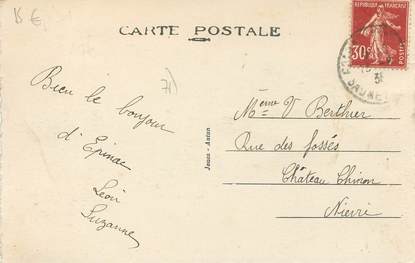 15 €
CARTE POSTALE
REPUBLIQUE FRANÇAISE
30c
POSTES
71)
Bien le bonjour
d'Epinac
Léon
Suzanne
Mme V Berthier
Rue des fossés
Château Chinon
Nièvre